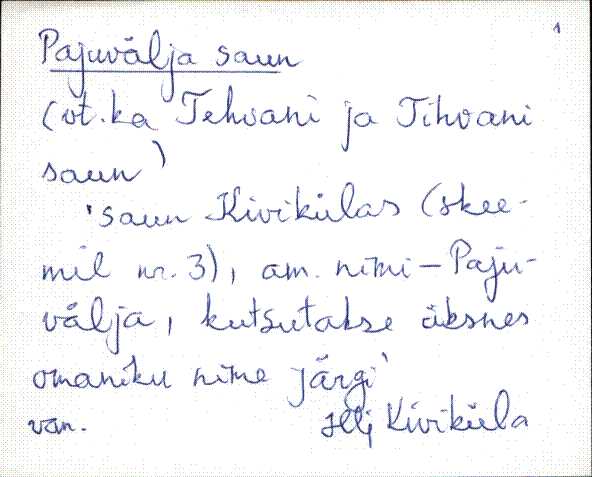 1
Pajuvälja saun
(vt. ka Tehvani ja Tihvani
saun)
'saun Kivikülas (skee-
mil nr. 3), am. nimi – Paju-
välja, kutsutakse üksnes
omaniku nime järgi'
van. Hlj Kiviküla